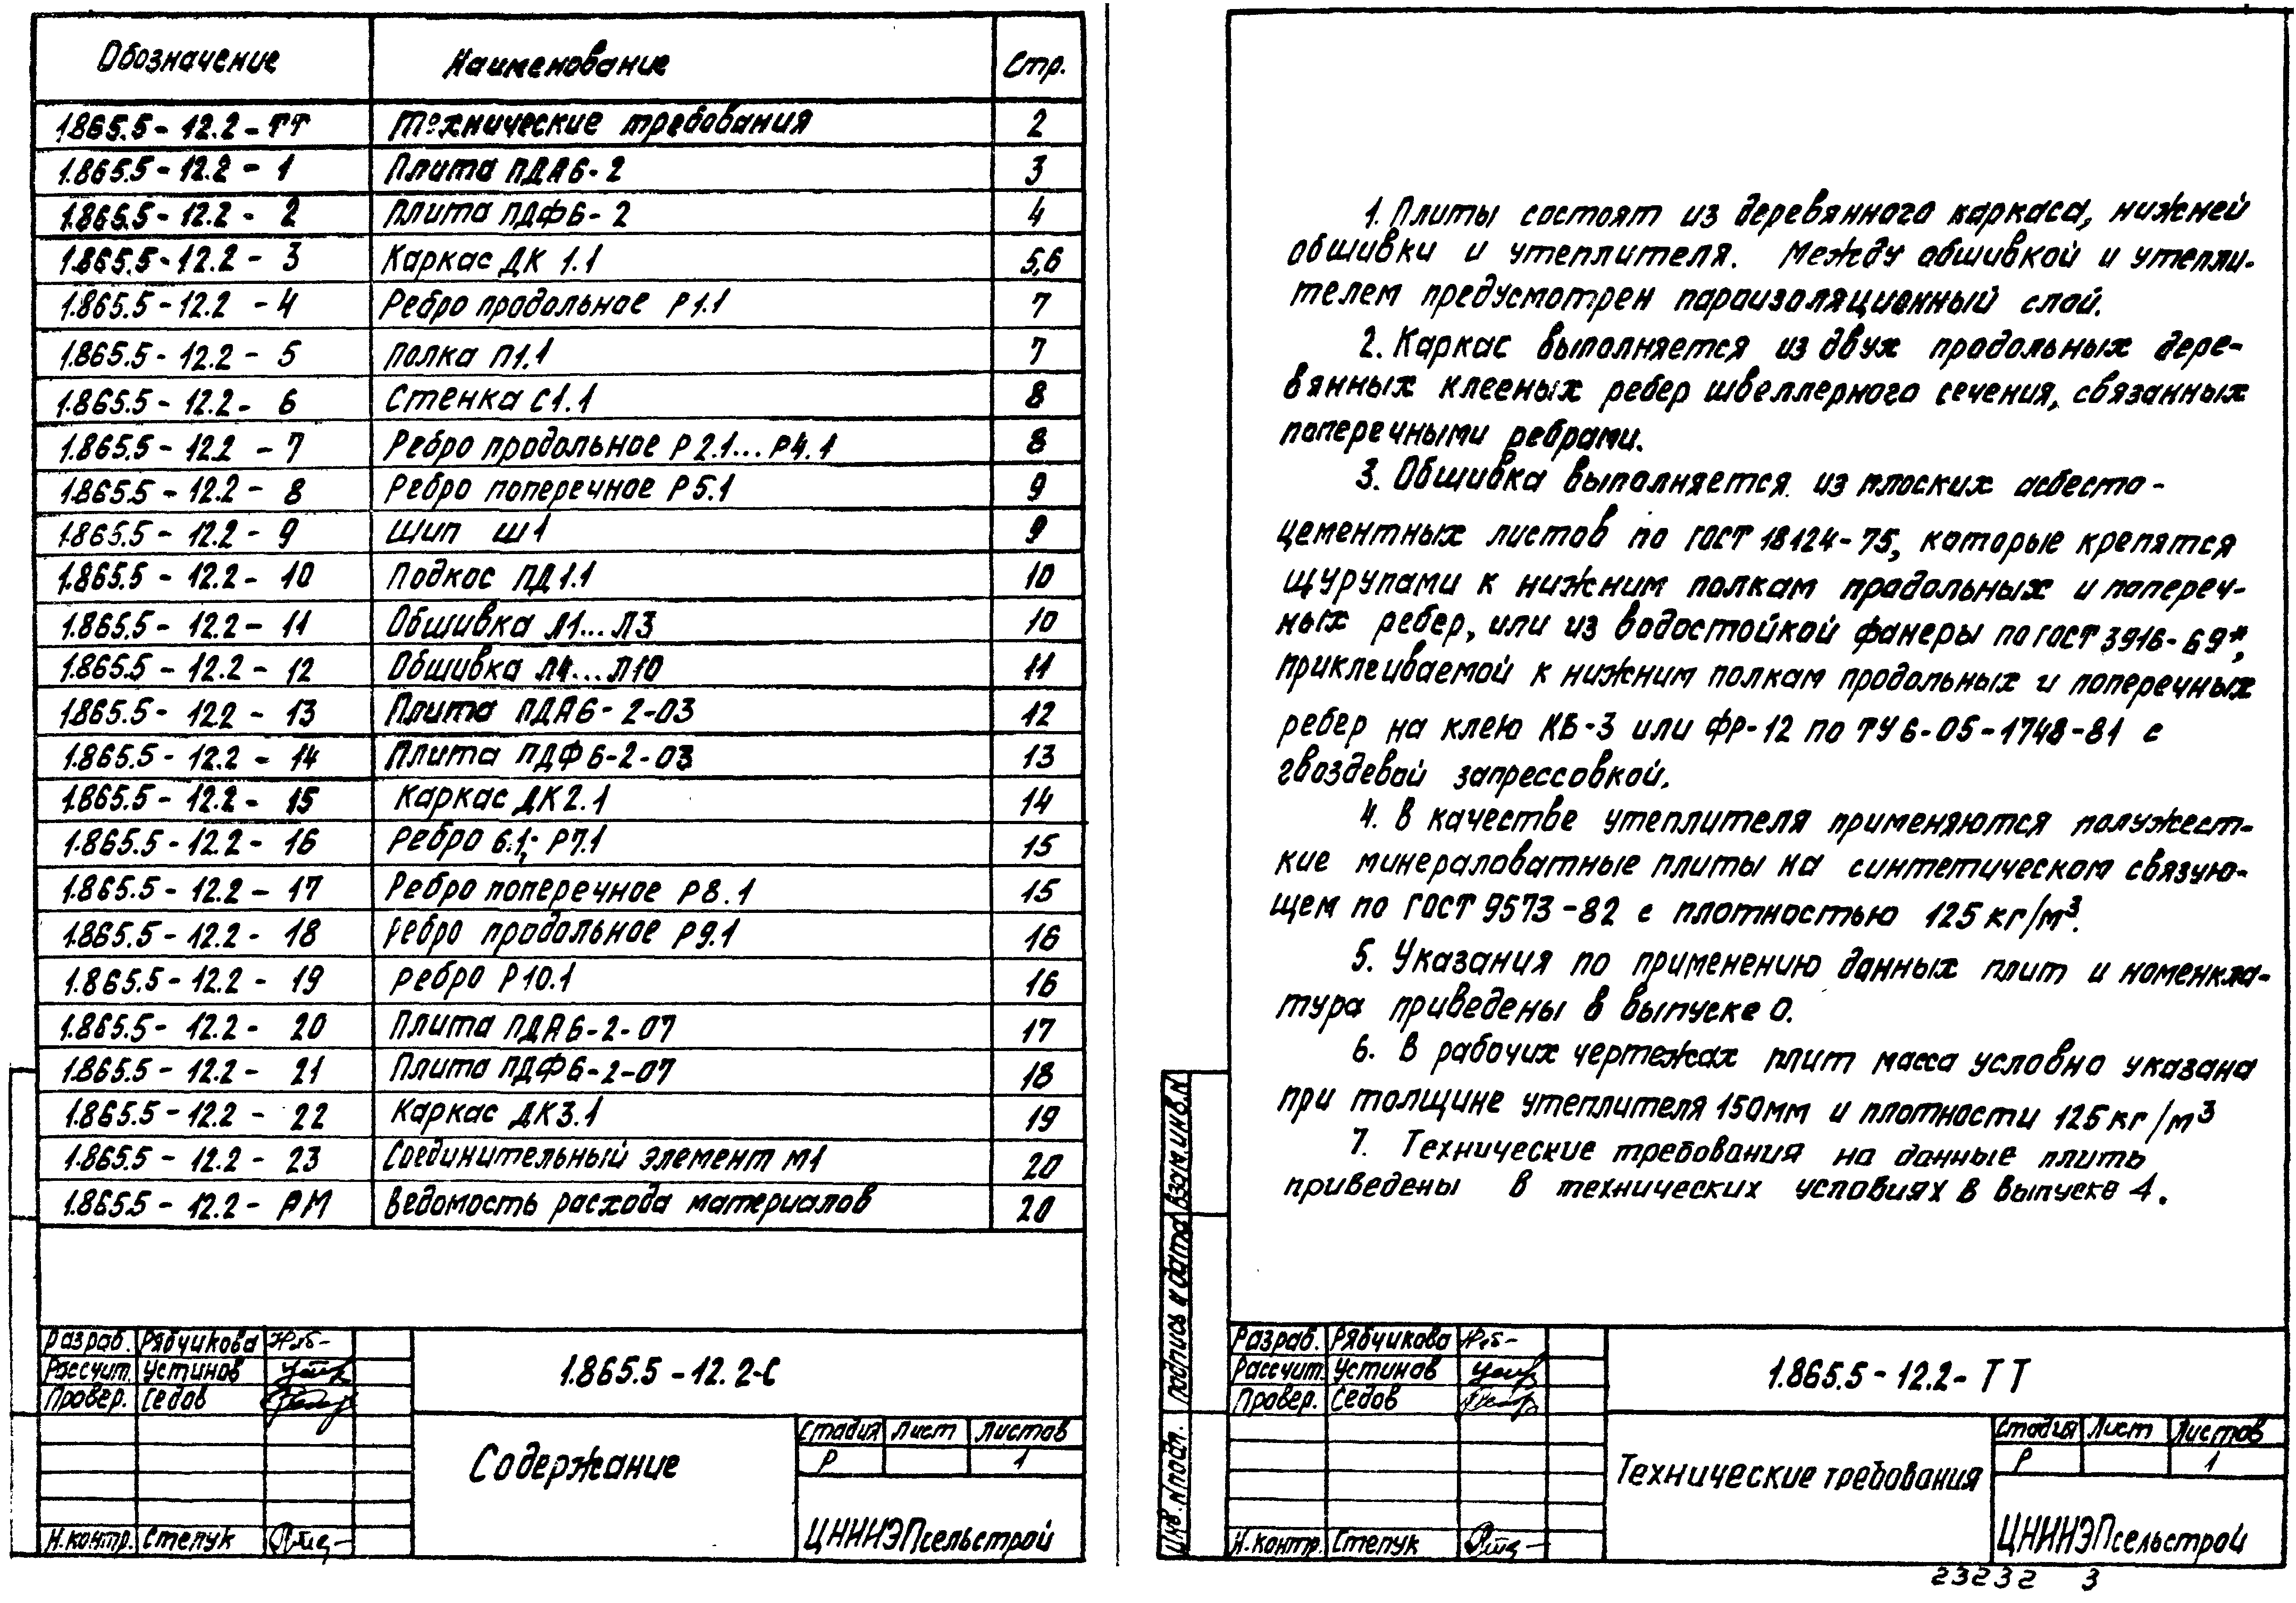 Обозначение Наименование Стр.
1.865.5-12.2-ТТ Технические требования 2
1.865.5-12.2-1 Плита ПДА6-2 3
1.865.5-12.2-2 Плита ПДФ6-2 4
1.865.5-12.2-3 Каркас ДК 1.1 5,6
1.865.5-12.2-4 Ребро продольное Р1.1 7
1.865.5-12.2-5 Полка П1.1 7
1.865.5-12.2-6 Стенка С1.1 8
1.865.5-12.2-7 Ребро продольное Р2.1...Р4.1 8
1.865.5-12.2-8 Ребро поперечное Р5.1 9
1.865.5-12.2-9 Шип Ш1 9
1.865.5-12.2-10 Подкос ПД1.1 10
1.865.5-12.2-11 Обшивка Л1...Л3 10
1.865.5-12.2-12 Обшивка Л4...Л10 11
1.865.5-12.2-13 Плита ПДА6-2-03 12
1.865.5-12.2-14 Плита ПДФ6-2-03 13
1.865.5-12.2-15 Каркас ДК2.1 14
1.865.5-12.2-16 Ребро 6.1; Р7.1 15
1.865.5-12.2-17 Ребро поперечное Р8.1 15
1.865.5-12.2-18 Ребро продольное Р9.1 16
1.865.5-12.2-19 Ребро Р10.1 16
1.865.5-12.2-20 Плита ПДА6-2-07 17
1.865.5-12.2-21 Плита ПДФ6-2-07 18
1.865.5-12.2-22 Каркас ДК3.1 19
1.865.5-12.2-23 Соединительный элемент М1 20
1.865.5-12.2-РМ Ведомость расхода материалов 20
Разраб. Рябчикова
Рассчит. Устинов
Провер. Седов
Н.контр. Степук
1.865.5-12.2-С
Содержание
Стадия Лист Листов
Р 1
ЦНИИЭПсельстрой
1. Плиты состоят из деревянного каркаса, нижней
обшивки и утеплителя. Между обшивкой и утепли-
телем предусмотрен пароизоляционный слой.
2. Каркас выполняется из двух продольных дере-
вянных клееных ребер швеллерного сечения, связанных
поперечными ребрами.
3. Обшивка выполняется из плоских асбесто-
цементных листов по ГОСТ 18124-75, которые крепятся
щурупами к нижним полкам продольных и попереч-
ных ребер, или из водостойкой фанеры по ГОСТ 3916-69*,
приклеиваемой к нижним полкам продольных и поперечных
ребер на клею КБ-3 или ФР-12 по ТУ 6-05-1748-81 с
гвоздевой запрессовкой.
4. В качестве утеплителя применяются полужест-
кие минераловатные плиты на синтетическом связую-
щем по ГОСТ 9573-82 с плотностью 125 кг/м³.
5. Указания по применению данных плит и номенкла-
тура приведены в выпуске 0.
6. В рабочих чертежах плит масса условно указана
при толщине утеплителя 150мм и плотности 125 кг/м³
7. Технические требования на данные плиты
приведены в технических условиях в выпуске 4.
Взам.инв.N
Подпись и дата
Инв.N подл.
Разраб. Рябчикова
Рассчит. Устинов
Провер. Седов
Н.контр. Степук
1.865.5-12.2-ТТ
Технические требования
Стадия Лист Листов
Р 1
ЦНИИЭПсельстрой
23232 3